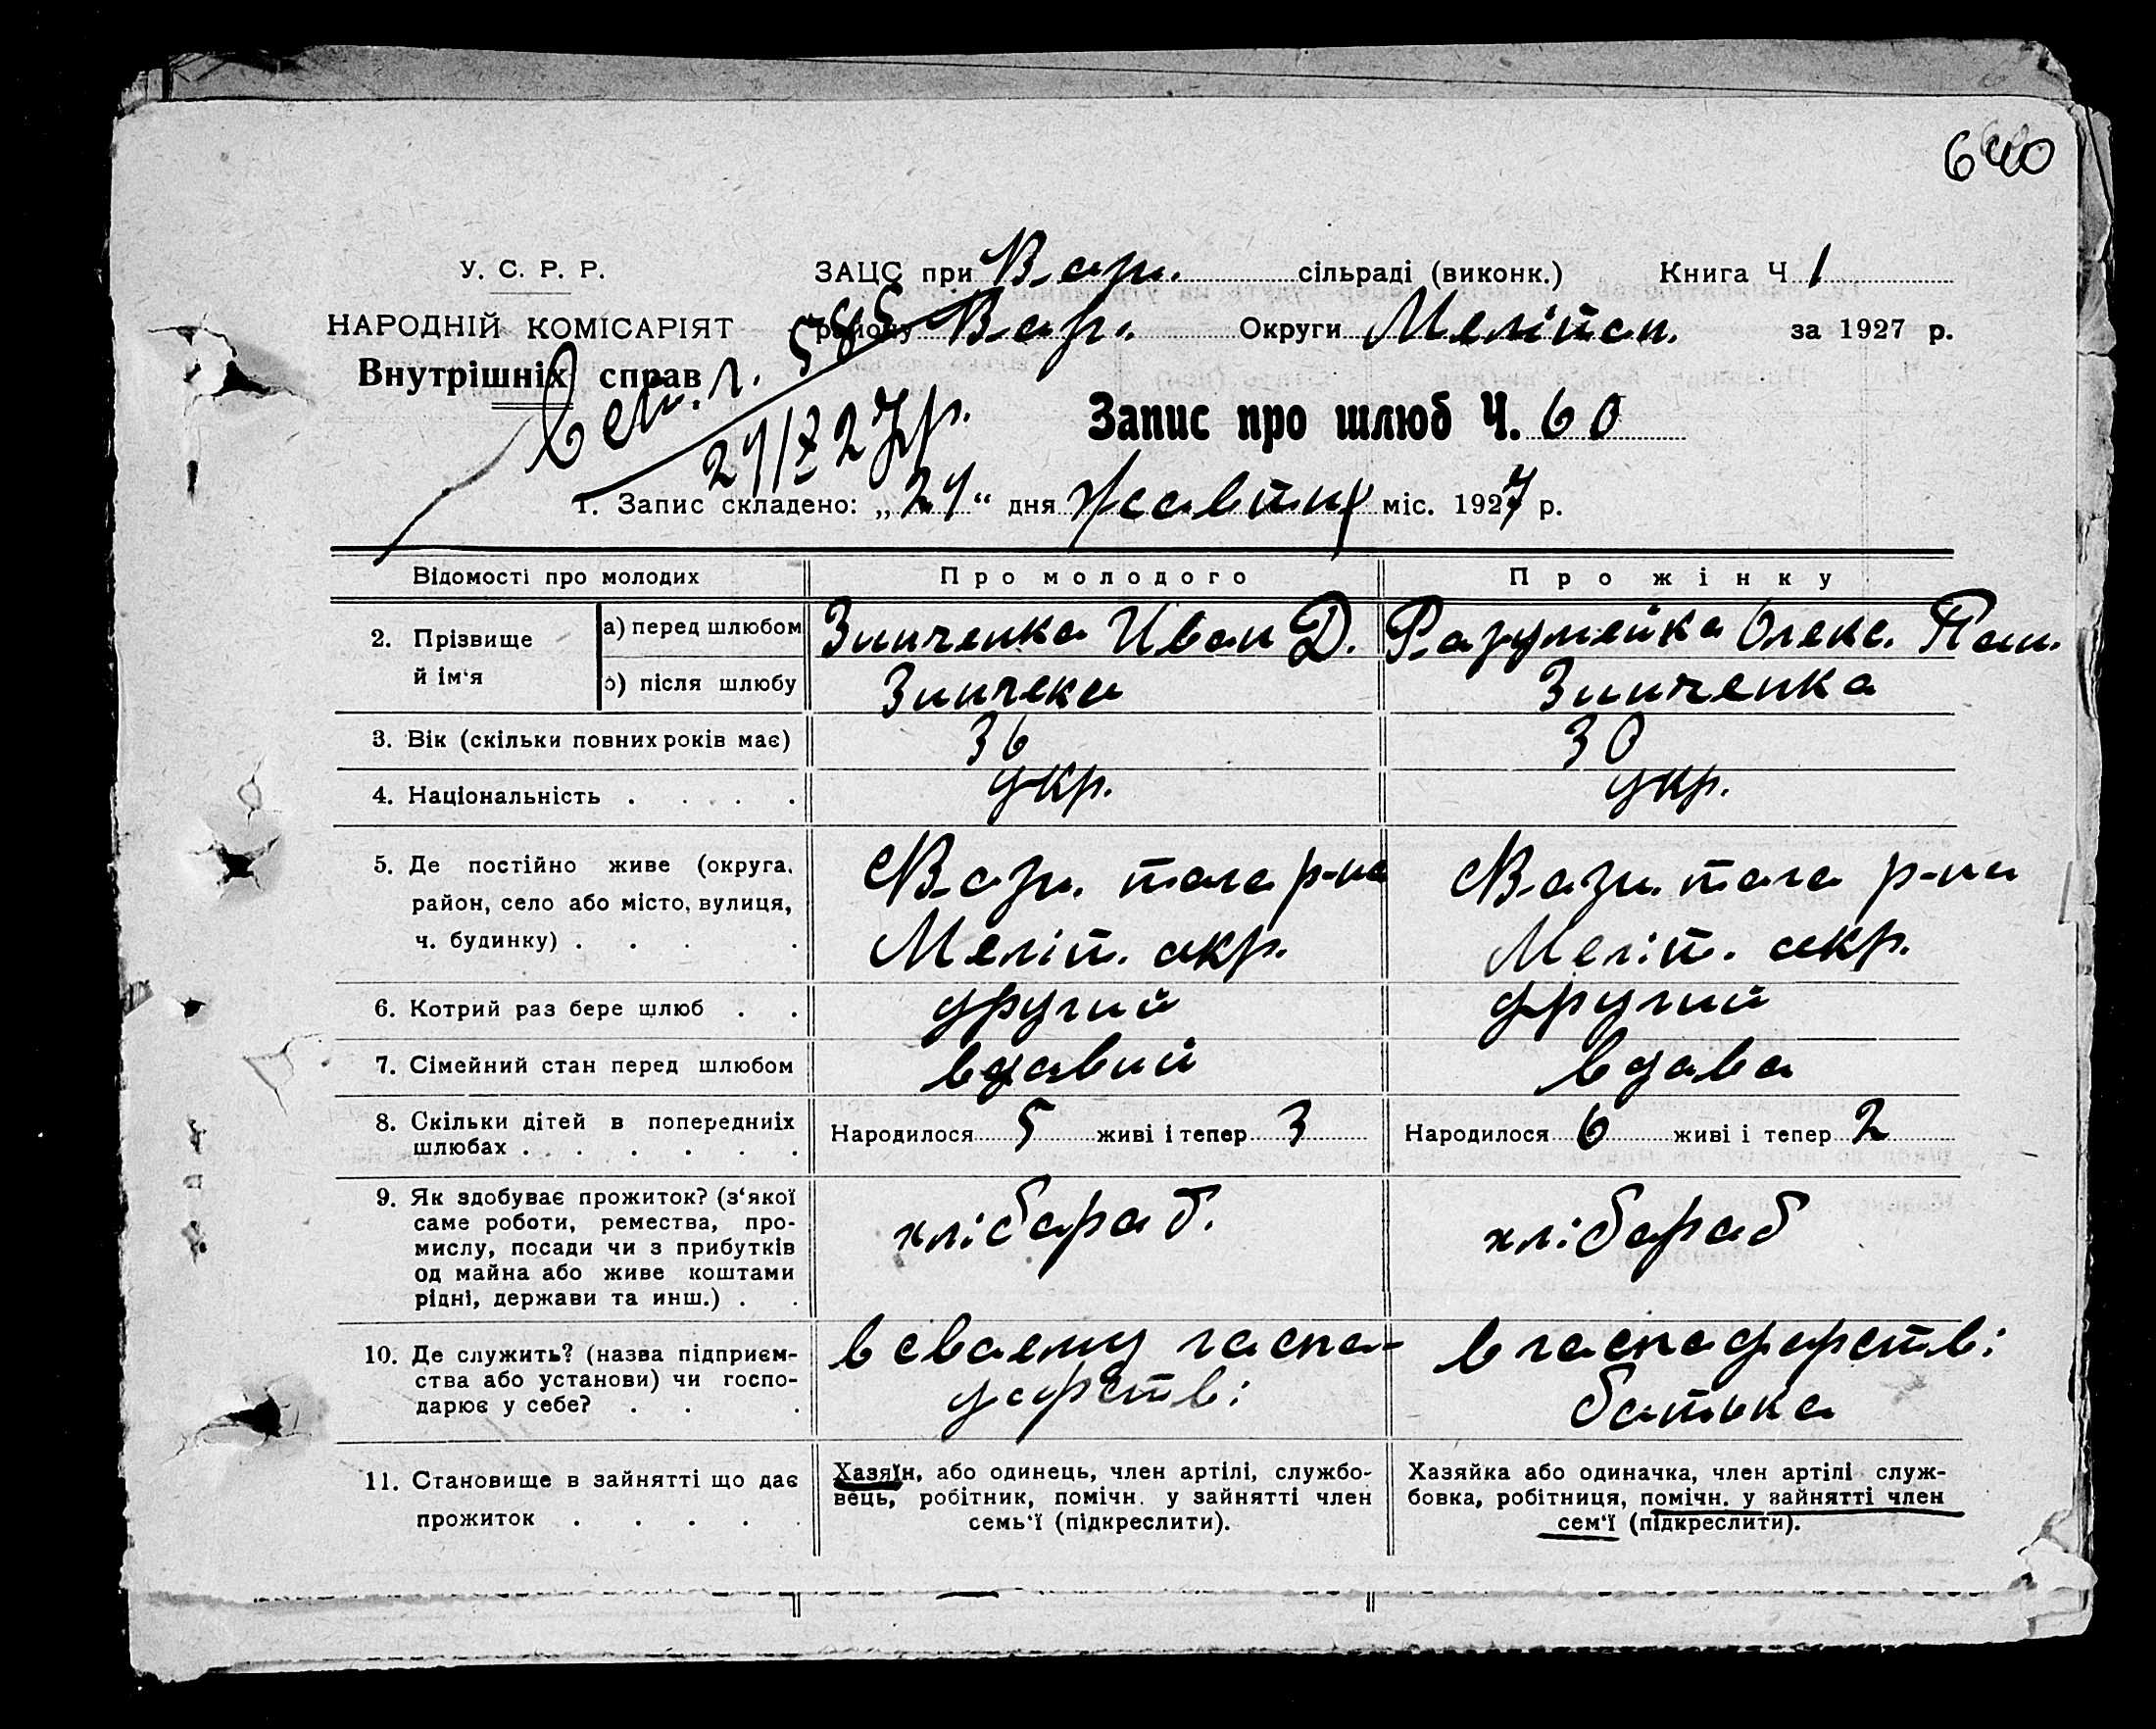 640
У. С. Р. Р.
НАРОДНІЙ КОМІСАРІЯТ
Внутрішніх справ
ЗАЦС при сільраді (виконк.) Книга Ч 1
району Округи Меліпол. за 1927 р.
585
Запис про шлюб Ч. 60
1. Запис складено: „ " дня міс. 1927 р.
Відомості про молодих
Про молодого
Про жінку
2. Прізвище й ім'я
а) перед шлюбом
Зинченка Иван Д.
Разумейка Олекс. Пан.
б) після шлюбу
Зинчека
Зинченка
3. Вік (скільки повних років має)
36
30
4. Національність . . . .
укр.
укр.
5. Де постійно живе (округа,
район, село або місто, вулиця,
ч. будинку) . . . .
тога р-на
Меліт. окр.
тога р-на
Меліт. окр.
6. Котрий раз бере шлюб . .
другий
другий
7. Сімейний стан перед шлюбом
вдавий
вдава
8. Скільки дітей в попередниіх
шлюбах . . . . . .
Народилося 5 живі і тепер 3
Народилося 6 живі і тепер 2
9. Як здобуває прожиток? (з'якої
саме роботи, ремества, про-
мислу, посади чи з прибутків
од майна або живе коштами
рідні, держави та инш.) . .
хлібараб.
хлібараб
10. Де служить? (назва підприєм-
ства або установи) чи госпо-
дарює у себе? . . .
в сваему гаспа-
дарстві
в гаспадарстві
батька
11. Становище в зайнятті що дає
прожиток . . . . .
Хазяїн, або одинець, член артілі, службо-
вець, робітник, помічн. у зайнятті член
семь'ї (підкреслити).
Хазяйка або одиначка, член артілі служ-
бовка, робітниця, помічн. у зайнятті член
сем'ї (підкреслити).